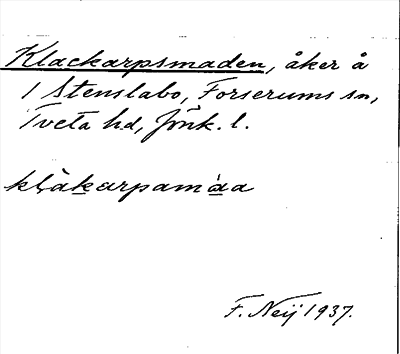 Klackarpsmaden, åker å
1 Stenslabo, Forserums sn,
Tveta hd, Jönk. l.
klàkarpamáda
F. Neij 1937.